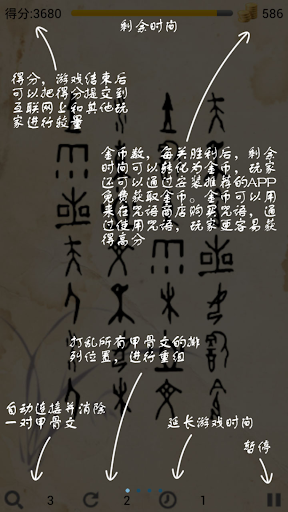 得分:3680
剩余时间
586
得分，游戏结束后
可以把得分提交到
互联网上和其他玩
家进行较量
金币数，每关胜利后，剩余
时间可以转化为金币，玩家
还可以通过安装推荐的APP
免费获取金币。金币可以用
来在咒语商店购买咒语，通
过使用咒语，玩家更容易获
得高分
打乱所有甲骨文的排
列位置，进行重组
自动连接并消除
一对甲骨文
延长游戏时间
暂停
3
2
1